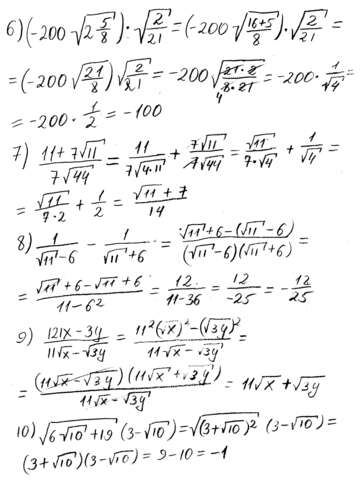 6) (-200 √(2 5/8)) · √(2/21) = (-200 √((16+5)/8)) · √(2/21) =
= (-200 √(21/8)) √(2/21) = -200 √((21·2)/(8·21)) = -200 · 1/√4 =
4
= -200 · 1/2 = -100
7) (11+7√11)/(7√44) = 11/(7√(4·11)) + (7√11)/(7√44) = √11/(7·√4) + 1/√4 =
= √11/(7·2) + 1/2 = (√11+7)/14
8) 1/(√11-6) - 1/(√11+6) = (√11+6-(√11-6))/((√11-6)(√11+6)) =
= (√11+6-√11+6)/(11-6²) = 12/(11-36) = 12/(-25) = -12/25
9) (121x-3y)/(11√x-√3y) = (11²(√x)²-(√3y)²)/(11√x-√3y) =
= ((11√x-√3y)(11√x+√3y))/(11√x-√3y) = 11√x+√3y
10) √(6√10+19) (3-√10) = √((3+√10)²) (3-√10) =
(3+√10)(3-√10) = 9-10 = -1